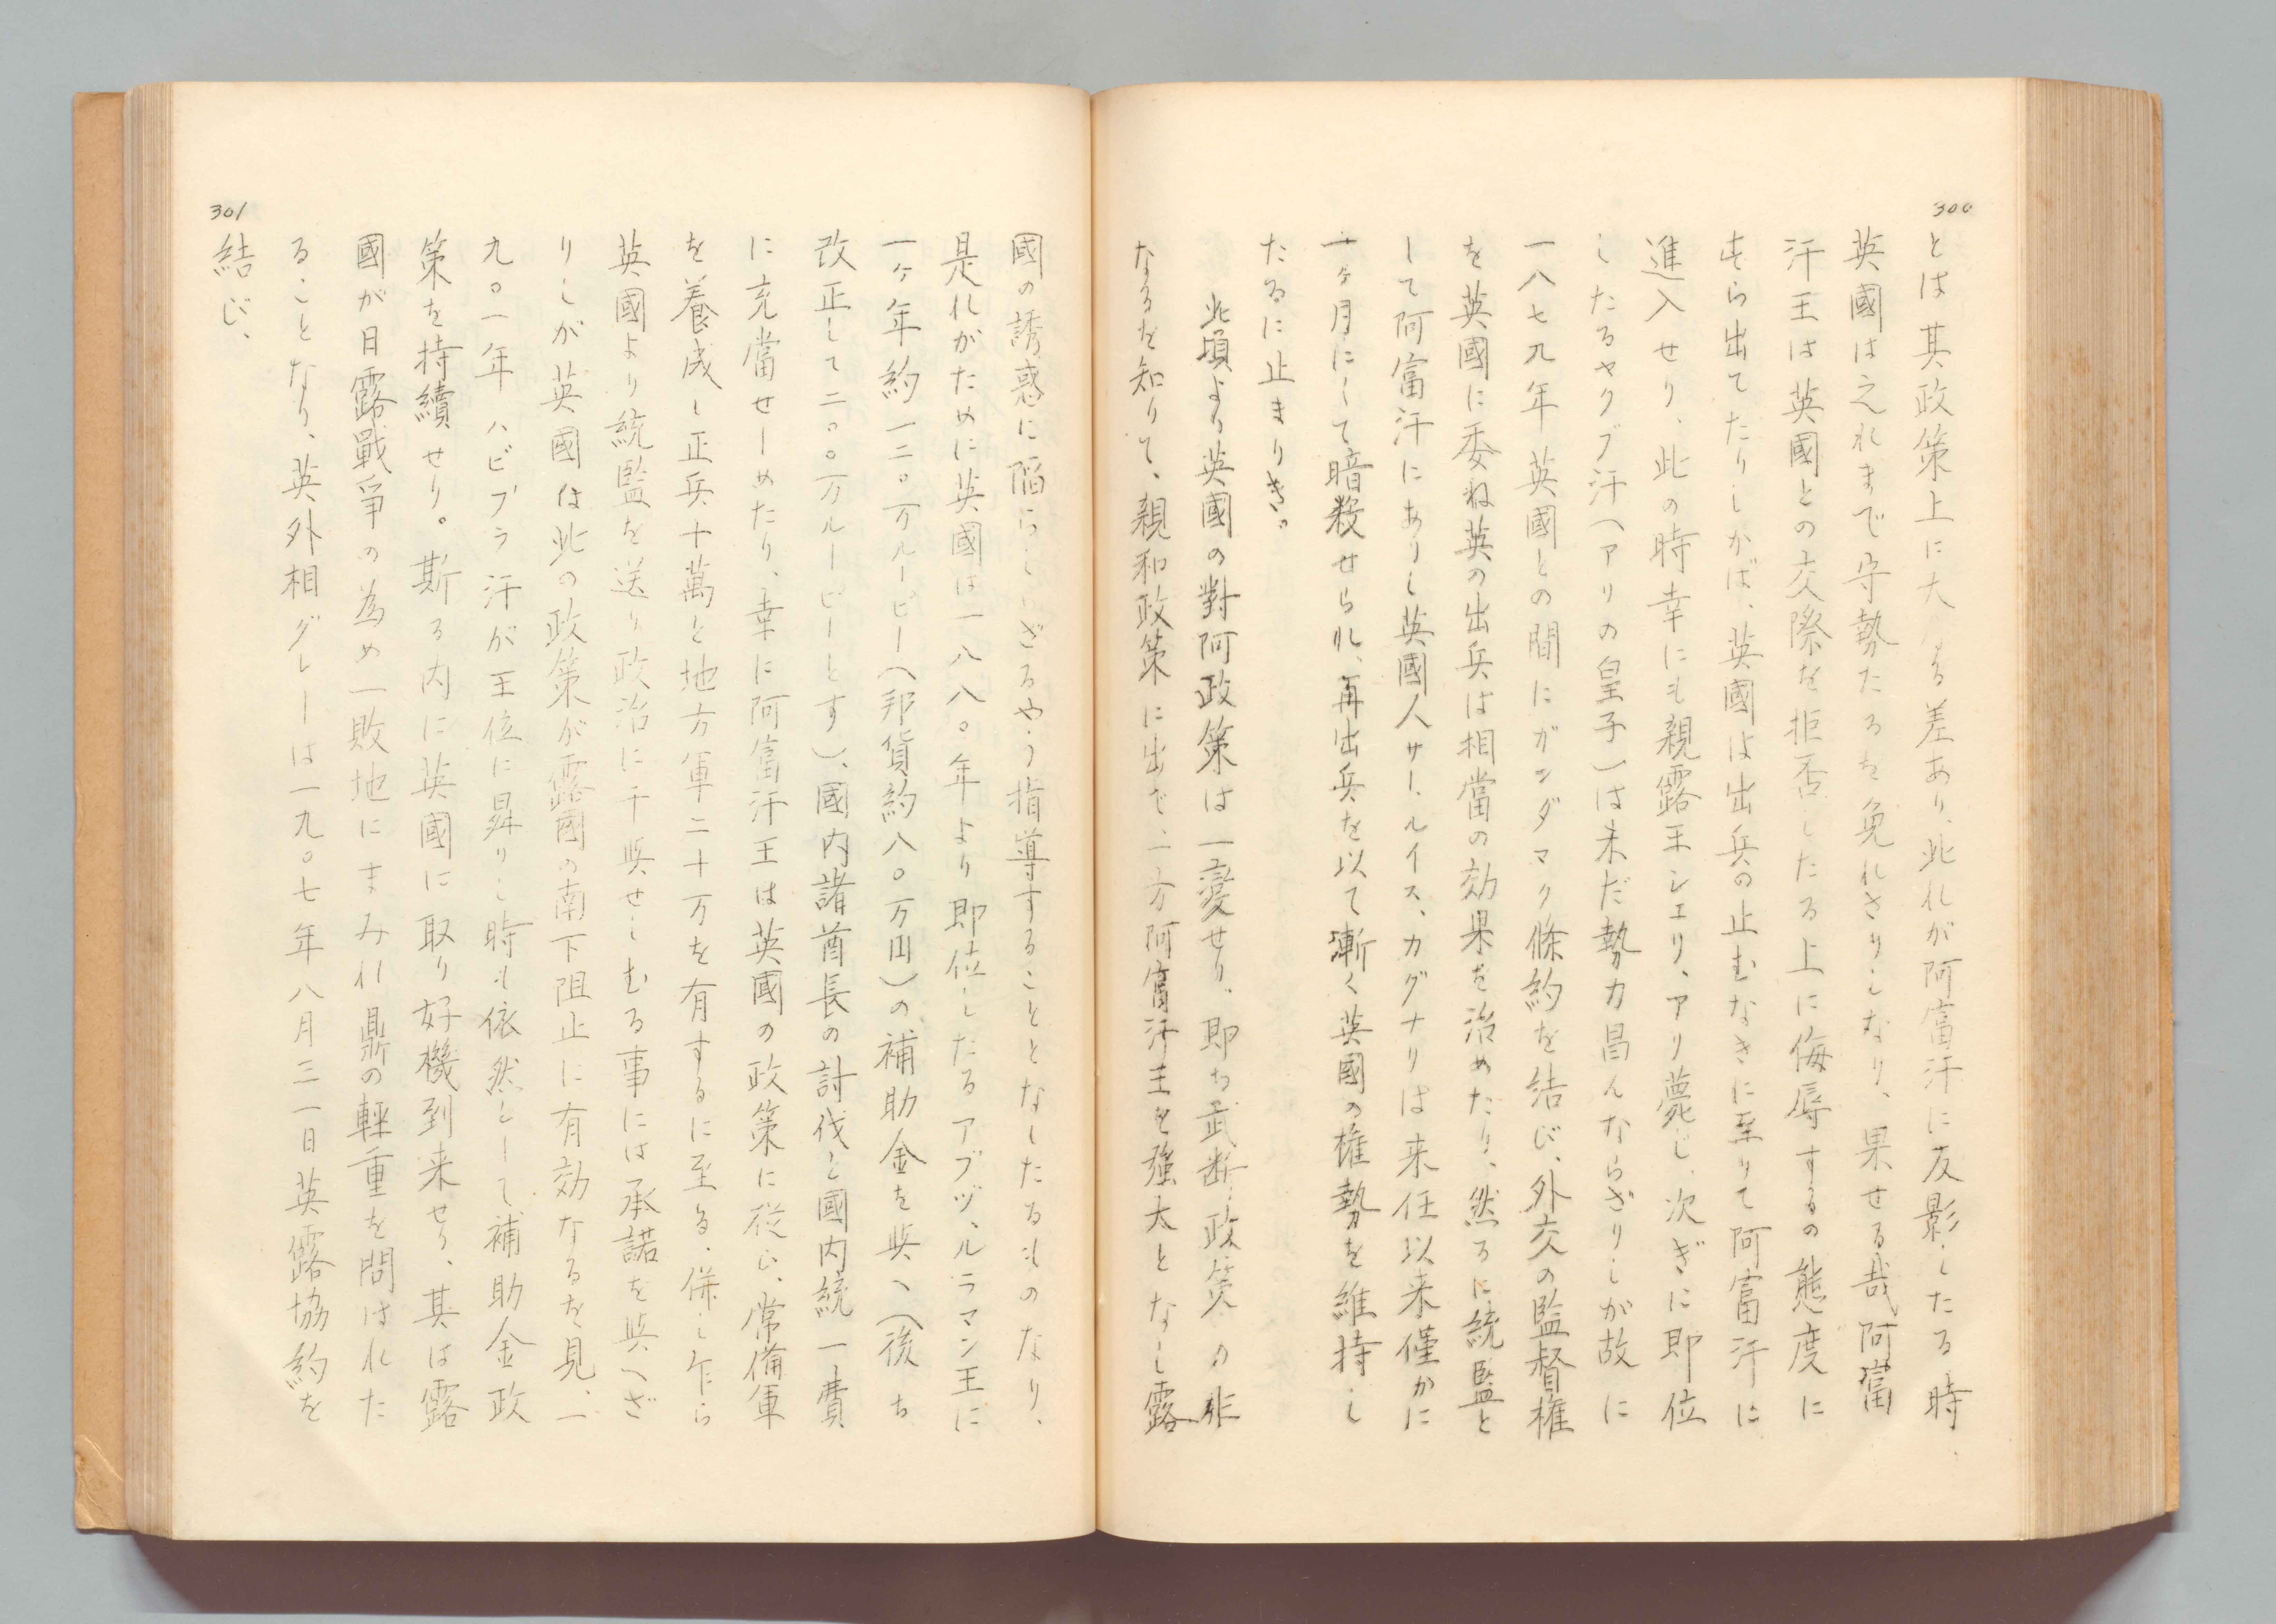 300
とは其政策上に大なる差あり、此れが阿富汗に反影したる時、
英國は之れまで守勢たるを免れさりしなり、果せる哉阿富
汗王は英國との交際を拒否したる上に侮辱するの態度に
すら出てたりしかば、英國は出兵の止むなきに至りて阿富汗に
進入せり、此の時幸にも親露王シエリ、アリ薨じ、次ぎに即位
したるヤクブ汗(アリの皇子)は未だ勢力昌んならざりしが故に
一八七九年英國との間にガンダマク條約を結び、外交の監督権
を英國に委ね英の出兵は相當の効果を治めたり、然るに統監と
して阿富汗にありし英國人サー、ルイス、カグナリは来任以来僅かに
一ヶ月にして暗殺せられ、再出兵を以て漸く英國の権勢を維持し
たるに止まりき。
此頃より英國の對阿政策は一変せり、即ち武断政策の非
なるを知りて、親和政策に出で、一方阿富汗王を強大となし露
國の誘惑に陥らしいざるやう指導することとなしたるものなり、
是れがために英國は一八八〇年より即位したるアブヅ、ルラマン王に
一ヶ年約一二〇万ルーピー(邦貨約八〇万円)の補助金を與へ(後ち
改正して二〇〇万ルーピーとす)、國内諸酋長の討伐と國内統一費
に充當せしめたり、幸に阿富汗王は英國の政策に従ひ、常備軍
を養成し正兵十萬と地方軍二十万を有するに至る、併し乍ら
英國より統監を送り政治に干與せしむる事には承諾を與へざ
りしが英國は此の政策が露國の南下阻止に有効なるを見、一
九〇一年ハビブラ汗が王位に昇りし時も依然として補助金政
策を持續せり。斯る内に英國に取り好機到来せり、其は露
國が日露戰爭の為め一敗地にまみれ鼎の軽重を問はれた
ることなり、英外相グレーは一九〇七年八月三一日英露協約を
結じ、
301